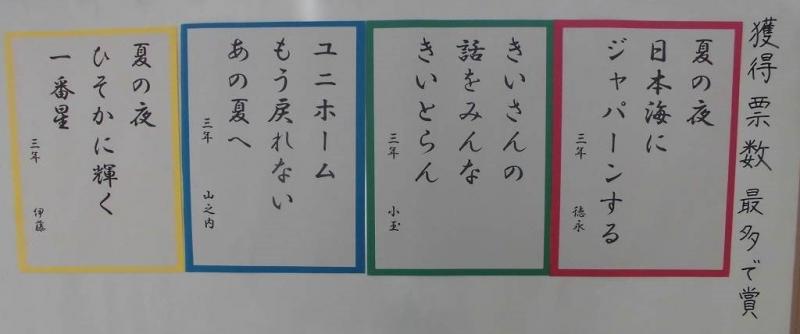 獲得票数最多で賞
夏の夜
日本海に
ジャパーンする
三年 徳永
きいさんの
話をみんな
きいとらん
三年 小玉
ユニホーム
もう戻れない
あの夏へ
三年 山之内
夏の夜
ひそかに輝く
一番星
三年 伊藤